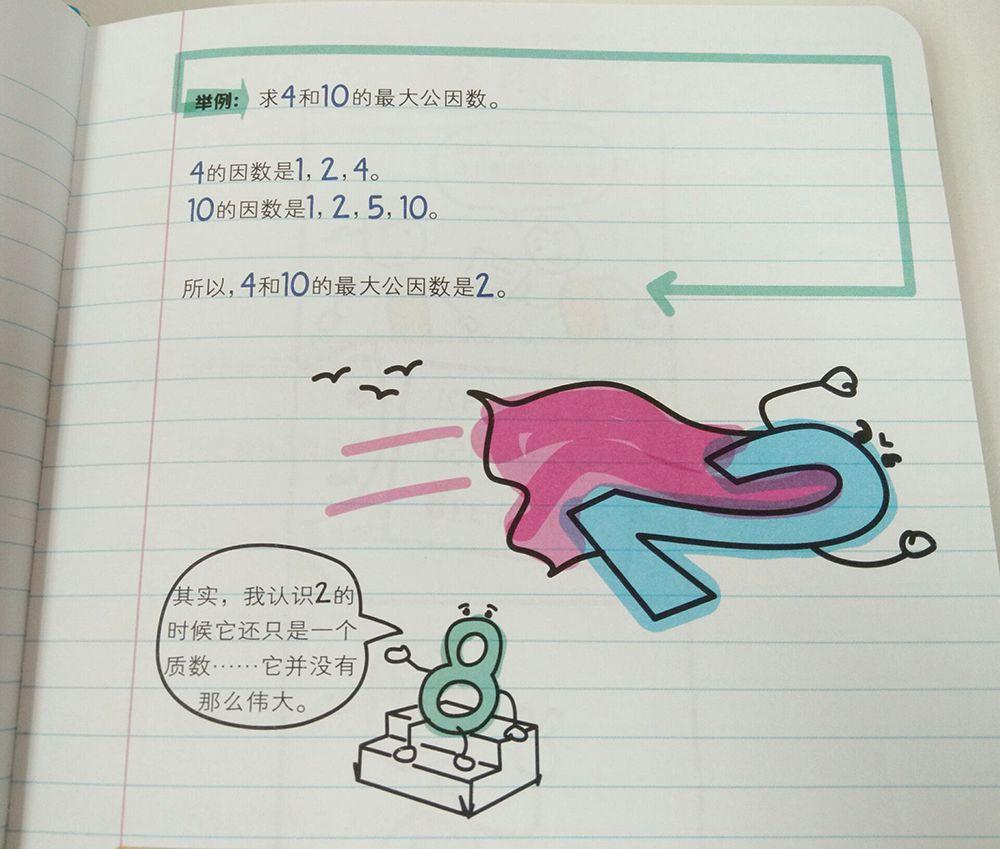 举例：求4和10的最大公因数。
4的因数是1，2，4。
10的因数是1，2，5，10。
所以，4和10的最大公因数是2。
其实，我认识2的
时候它还只是一个
质数……它并没有
那么伟大。
2
8